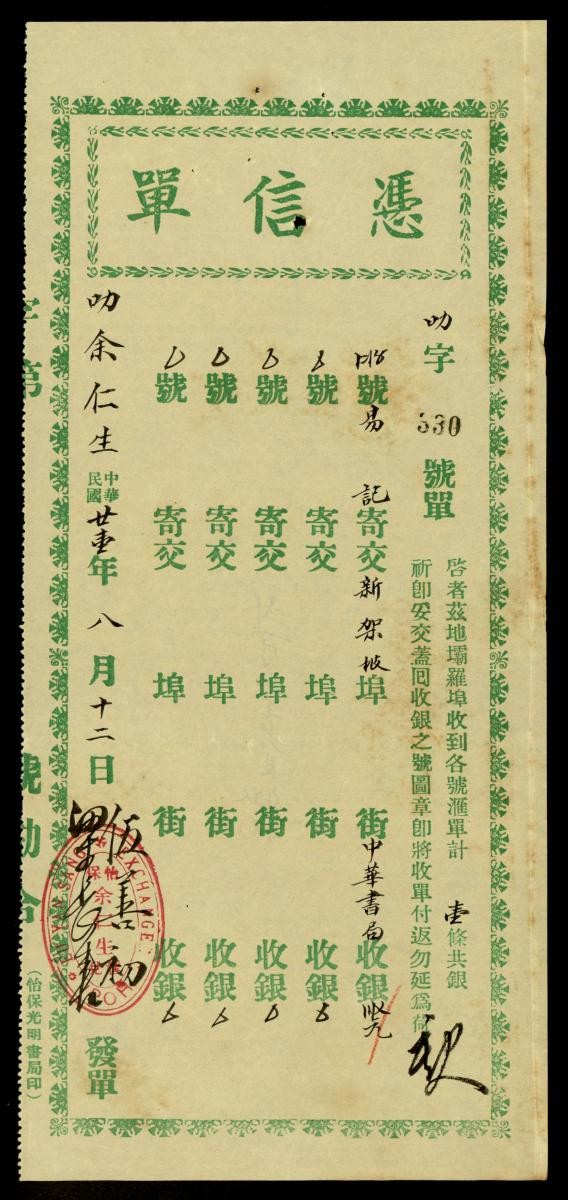 憑信單
叻字 530 號單
啓者茲地壩羅埠收到各號滙單計 壹條共銀
祈卽妥交蓋囘收銀之號圖章卽將收單付返勿延爲荷
號易記寄交新架坡埠 街中華書局收銀
號 寄交 埠 街 收銀
號 寄交 埠 街 收銀
號 寄交 埠 街 收銀
號 寄交 埠 街 收銀
叻余仁生 中華民國廿壹年八月十二日 伍善初 發單
EXCHANGE
怡保
余仁生
字第 號勷
(怡保光明書局印)